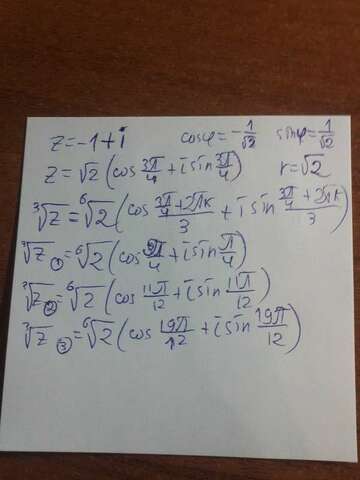 z = -1 + i cosφ = -1/√2 sinφ = 1/√2
z = √2 (cos 3π/4 + i sin 3π/4) r = √2
∛z = ⁶√2 (cos (3π/4 + 2πk)/3 + i sin (3π/4 + 2πk)/3)
∛z ① = ⁶√2 (cos π/4 + i sin π/4)
∛z ② = ⁶√2 (cos 11π/12 + i sin 11π/12)
∛z ③ = ⁶√2 (cos 19π/12 + i sin 19π/12)